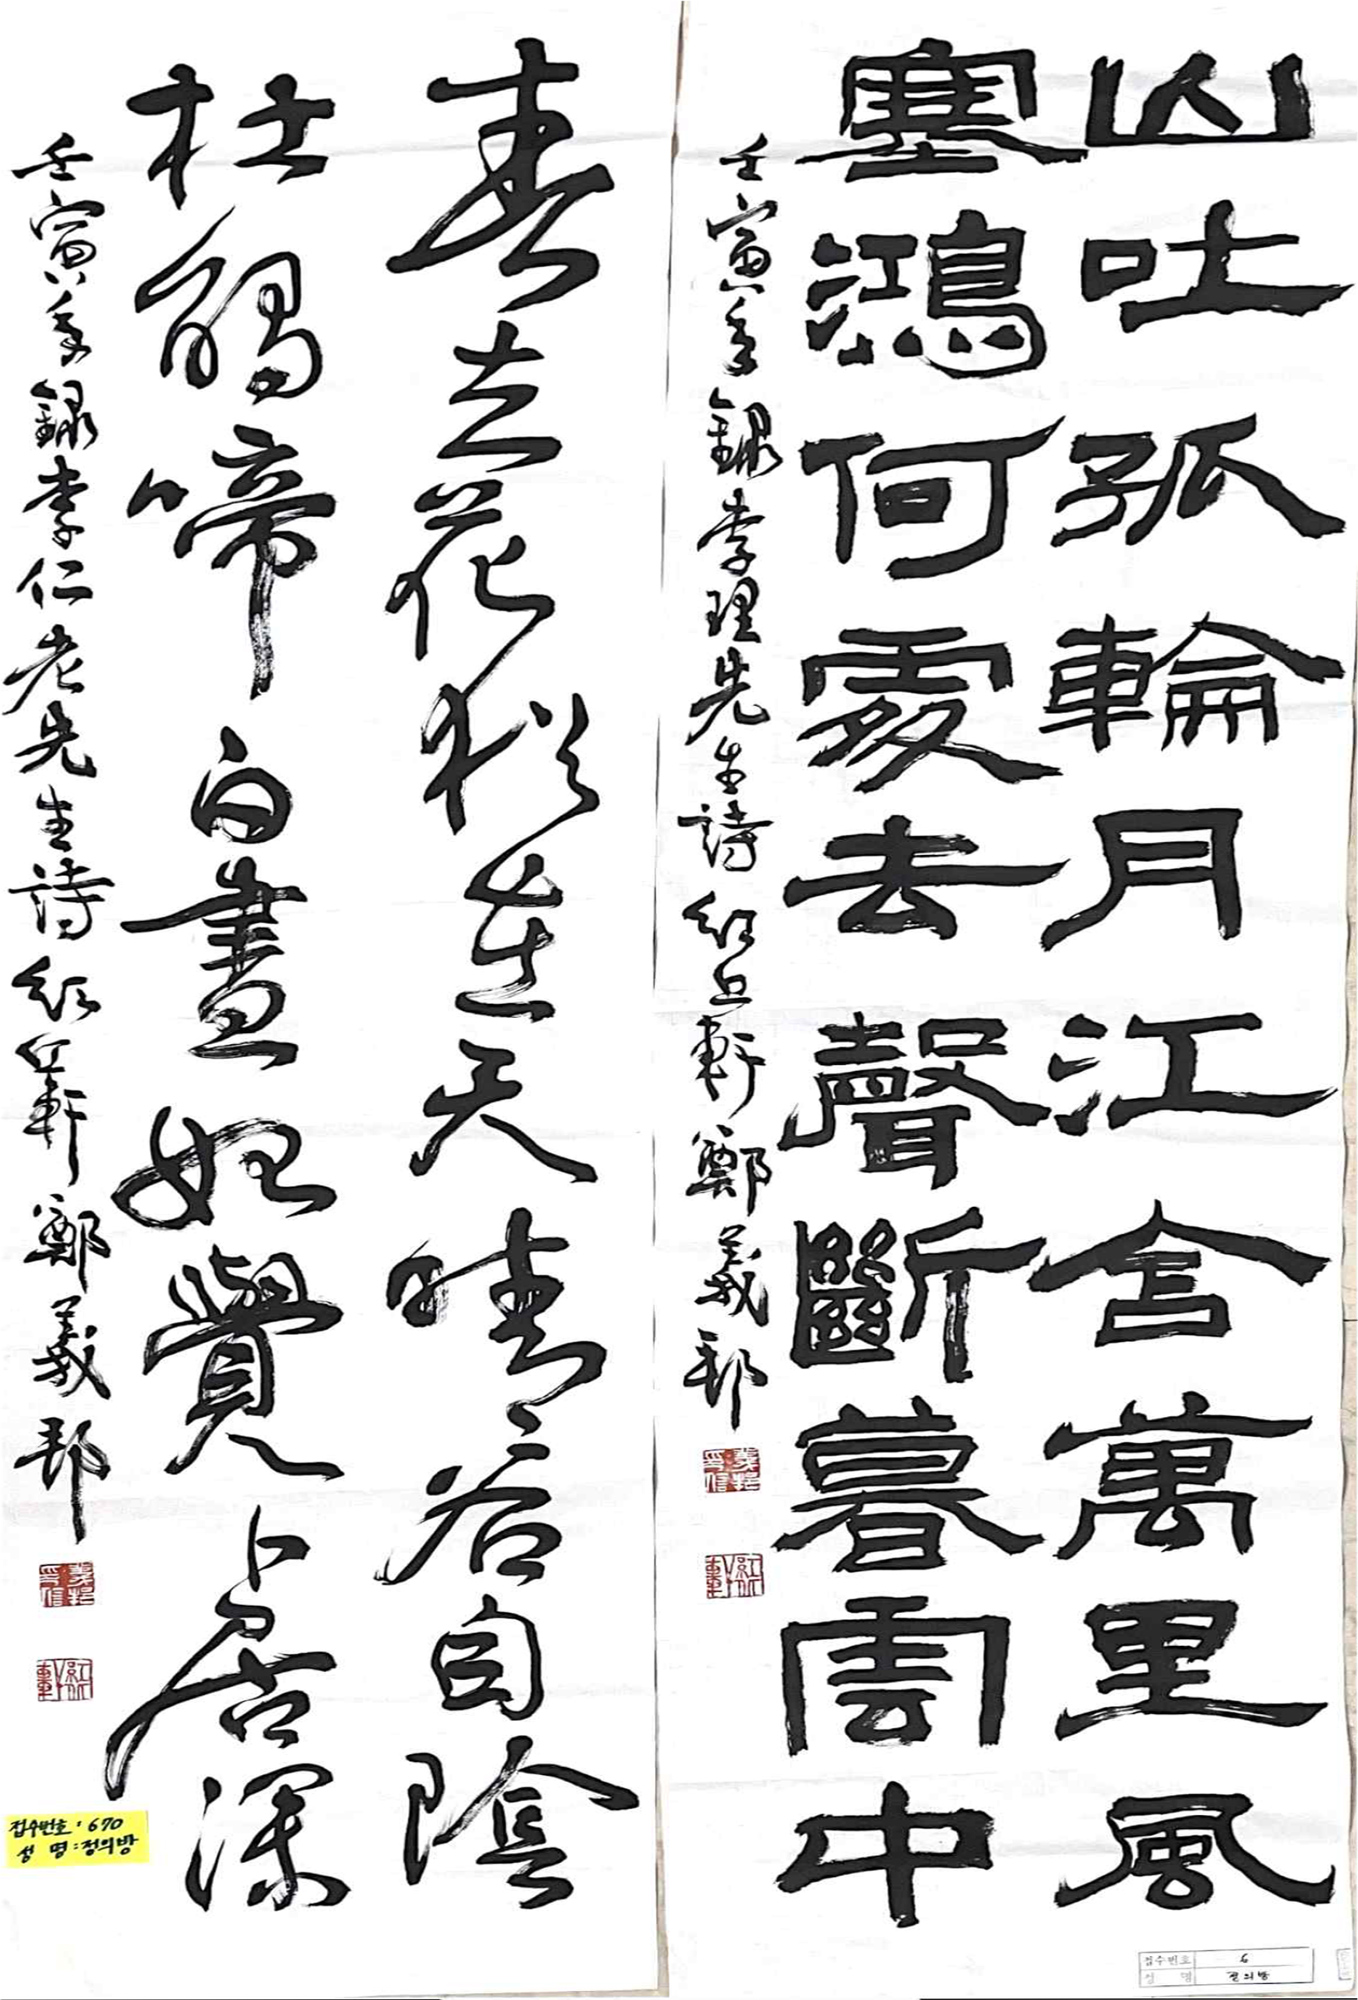 山吐孤輪月江含萬里風
塞鴻何處去聲斷暮雲中
壬寅年錄李珥先生詩 紅丘軒 鄭義邦
春去花猶在天晴谷自陰
杜鵑啼白晝始覺卜居深
壬寅年錄李仁老先生詩 紅丘軒 鄭義邦
접수번호 : 670
성 명 : 정의방
접수번호 6
성 명 정의방